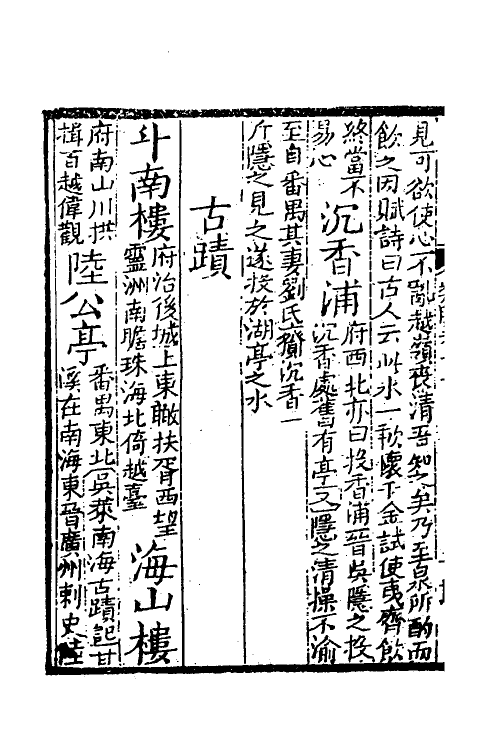 見可欲使心不亂越嶺喪清吾知之矣乃至泉所酌而
飲之因賦詩曰古人云此水一歃懷千金試使夷齊飲
終當不
易心
沉香浦
府西北亦曰投香浦晉吳隱之投
沉香處舊有亭又隱之清操不渝
至自番禺其妻劉氏賫沉香一
斤隱之見之遂投於湖亭之水
古蹟
斗南樓
府治後城上東瞰扶胥西望
靈洲南瞻珠海北倚越臺
海山樓
府南山川拱
揖百越偉觀
陸公亭
番禺東北吳萊南海古蹟記甘
溪在南海東晉廣州刺史陸